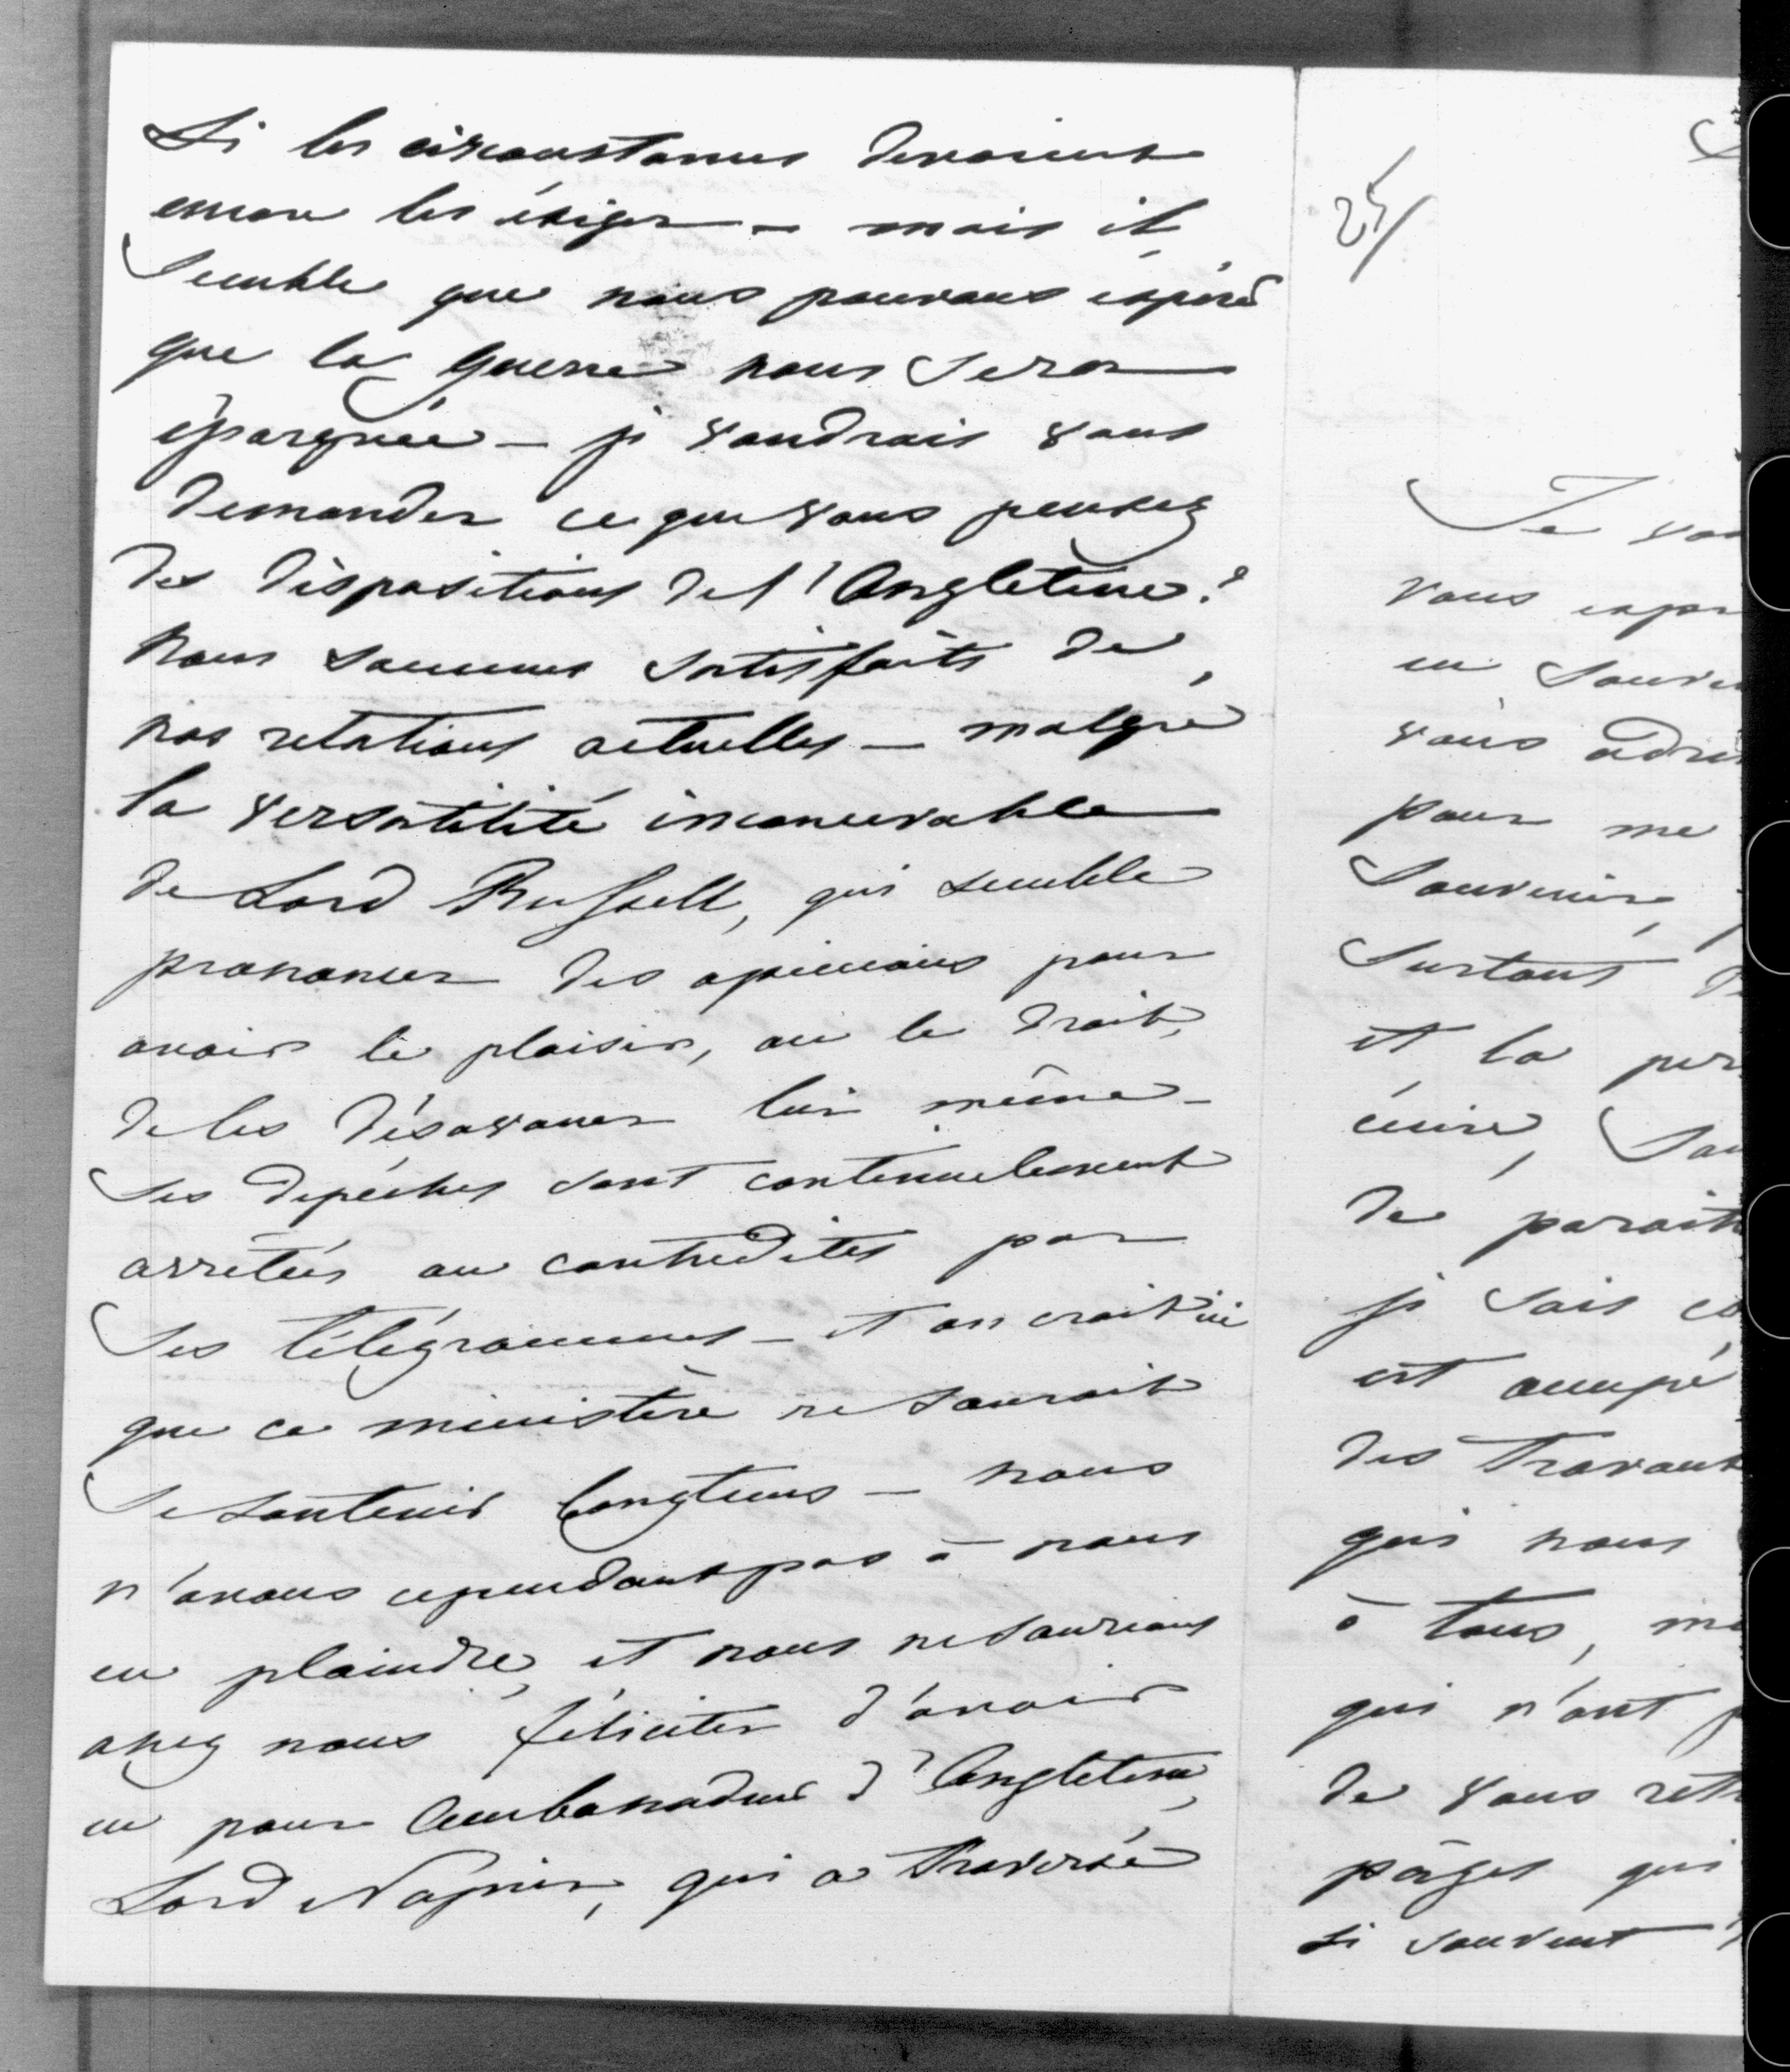 Si les circonstances devaient
encore les éxiger – mais il
semble que nous pouvons éspérér
que la guerre nous sera
épargnée – je voudrais vous
demander ce que vous pensez
des dispositions de l'Angleterre?
Nous sommes satisfaits de
nos relations actuelles – malgré
la versatilité inconcevable
de Lord Russell, qui semble
prononcer des opinions pour
avoir le plaisir, ou le droit,
de les désavouer lui même –
Ses depéches sont continuelement
arrêtées ou contredites par
Ses télégrammes – et on croit ici
que ce ministère ne saurait
se soutenir longtems – nous
n'avons cependant pas à nous
en plaindre, et nous ne saurions
assez nous féliciter d'avoir
eu pour Ambassadeur d'Angleterre,
Lord Napier, qui a traversé
25/
Je vou
vous expr
en souve
vous adre
pour me
Souvenir,
Surtout d
et la per
écrire, Sa
de paraitr
je sais co
est occupé
des Travaux
qui nous
à tous, ma
qui n'ont p
de vous retr
pages qui
si souvent